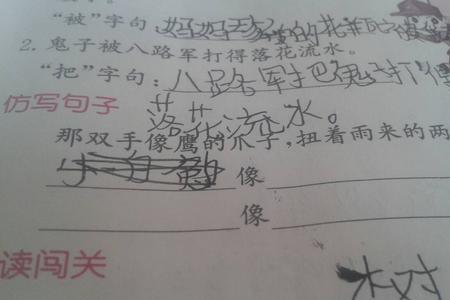 “被”字句：妈妈
2. 鬼子被八路军打得落花流水。
“把”字句：八路军把鬼子打得
落花流水。
仿写句子
那双手像鹰的爪子，扭着雨来的两
像
像
读闯关
树